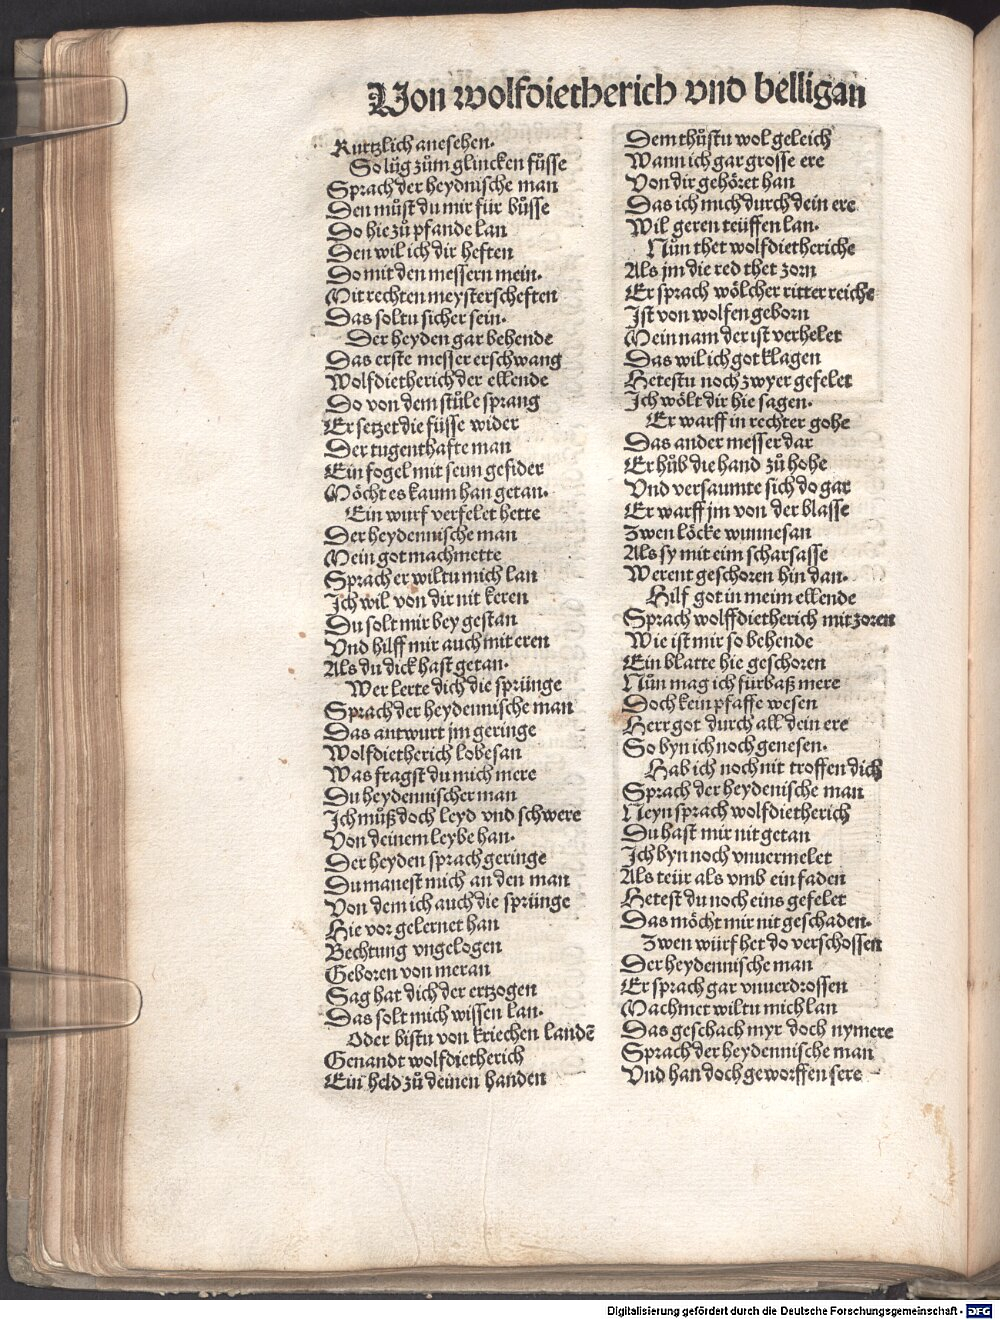 Von wolfdietherich vnd belligan
Kurtzlich anesehen.
So lůg zům glincken fůsse
Sprach der heydnische man
Den můst du mir für bůsse
Do hie zů pfande lan
Den wil ich dir heften
Do mit den messern mein.
Mit rechten meysterscheften
Das soltu sicher sein.
Der heyden gar behende
Das erste messer erschwang
Wolfdietherich der ellende
Do von dem stůle sprang
Er setzet die füsse wider
Der tugenthafte man
Ein fogel mit seim gefider
Möcht es kaum han getan.
Ein wurf verfelet hette
Der heydennische man
Mein got machmette
Sprach er wiltu mich lan
Ich wil von dir nit keren
Du solt mir bey gestan
Vnd hilff mir auch mit eren
Als du dick hast getan.
Wer lerte dich die sprünge
Sprach der heydennische man
Das antwurt jm geringe
Wolfdietherich lobesan
Was fragst du mich mere
Du heydennischer man
Ich můß doch leyd vnd schwere
Von deinem leybe han.
Der heyden sprach geringe
Du manest mich an den man
Von dem ich auch die sprünge
Hie vor gelernet han
Bechtung vngelogen
Geboren von meran
Sag hat dich der ertzogen
Das solt mich wissen lan.
Oder bistu von kriechen landē
Genandt wolfdietherich
Ein held zů deinen handen
Dem thůstu wol geleich
Wann ich gar grosse ere
Von dir gehöret han
Das ich mich durch dein ere
Wil geren teüffen lan.
Nůn thet wolfdietheriche
Als jm die red thet zorn
Er sprach wölcher ritter reiche
Ist von wolfen geborn
Mein nam der ist verhelet
Das wil ich got klagen
Hetestu noch zwyer gefelet
Ich wölt dir hie sagen.
Er warff in rechter gohe
Das ander messer dar
Er hůb die hand zů hohe
Vnd versaumte sich do gar
Er warff jm von der blasse
Zwen löcke wunnesan
Als sy mit eim scharsasse
Werent geschoren hin dan.
Hilf got in meim ellende
Sprach wolffdietherich mit zoren
Wie ist mir so behende
Ein blatte hie geschoren
Nůn mag ich fürbaß mere
Doch kein pfaffe wesen
Herr got durch all dein ere
So byn ich noch genesen.
Hab ich noch nit troffen dich
Sprach der heydenische man
Neyn sprach wolfdietherich
Du hast mir nit getan
Ich byn noch vnuermelet
Als teür als vmb ein faden
Hetest du noch eins gefelet
Das möcht mir nit geschaden.
Zwen würf het do verschossen
Der heydennische man
Er sprach gar vnuerdrossen
Machmet wiltu mich lan
Das geschach myr doch nymere
Sprach der heydennische man
Vnd han doch geworffen sere
Digitalisierung gefördert durch die Deutsche Forschungsgemeinschaft - DFG